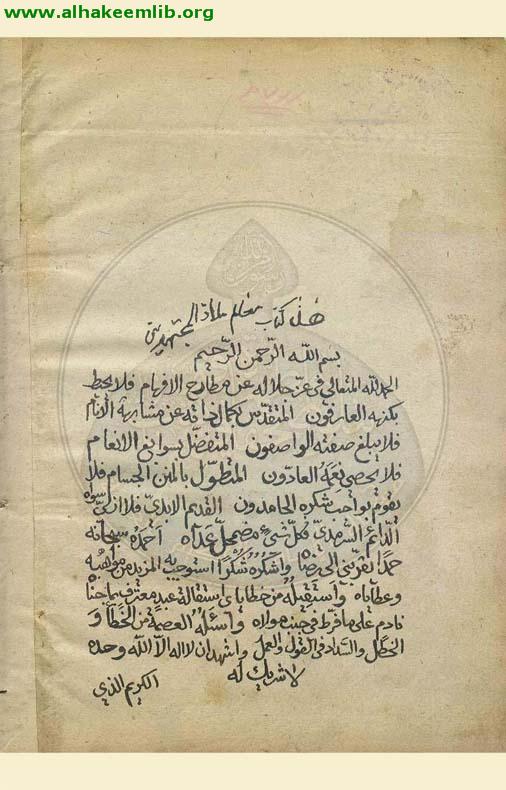 www.alhakeemlib.org
هذا كتاب معالم ملاذ المجتهدين
بسم الله الرحمن الرحيم
الحمد لله المتعالي في عز جلاله عن مطارح الافهام فلا يحيط
بكنهه العارفون المتقدس بكمال ذاته عن مشابهة الانام
فلا يبلغ صفته الواصفون المتفضل بسوابغ الانعام
فلا يحصي نعمه العادون المتطول بالمنن الجسام فلا
يقوم بواجب شكره الحامدون القديم الابدي فلا ازلي سواه
الدائم السرمدي فكل شيء مضمحل عداه احمده سبحانه
حمدا يقربني الى رضاه واشكره شكرا استوجب به المزيد من مواهبه
وعطاياه واستقيله من خطاياي استقالة عبد معترف بما جناه
نادم على ما فرط في جنب مولاه واسئله العصمة من الخطأ و
الخطل والسداد في القول والعمل واشهد ان لا اله الا الله وحده
لا شريك له
الكريم الذي